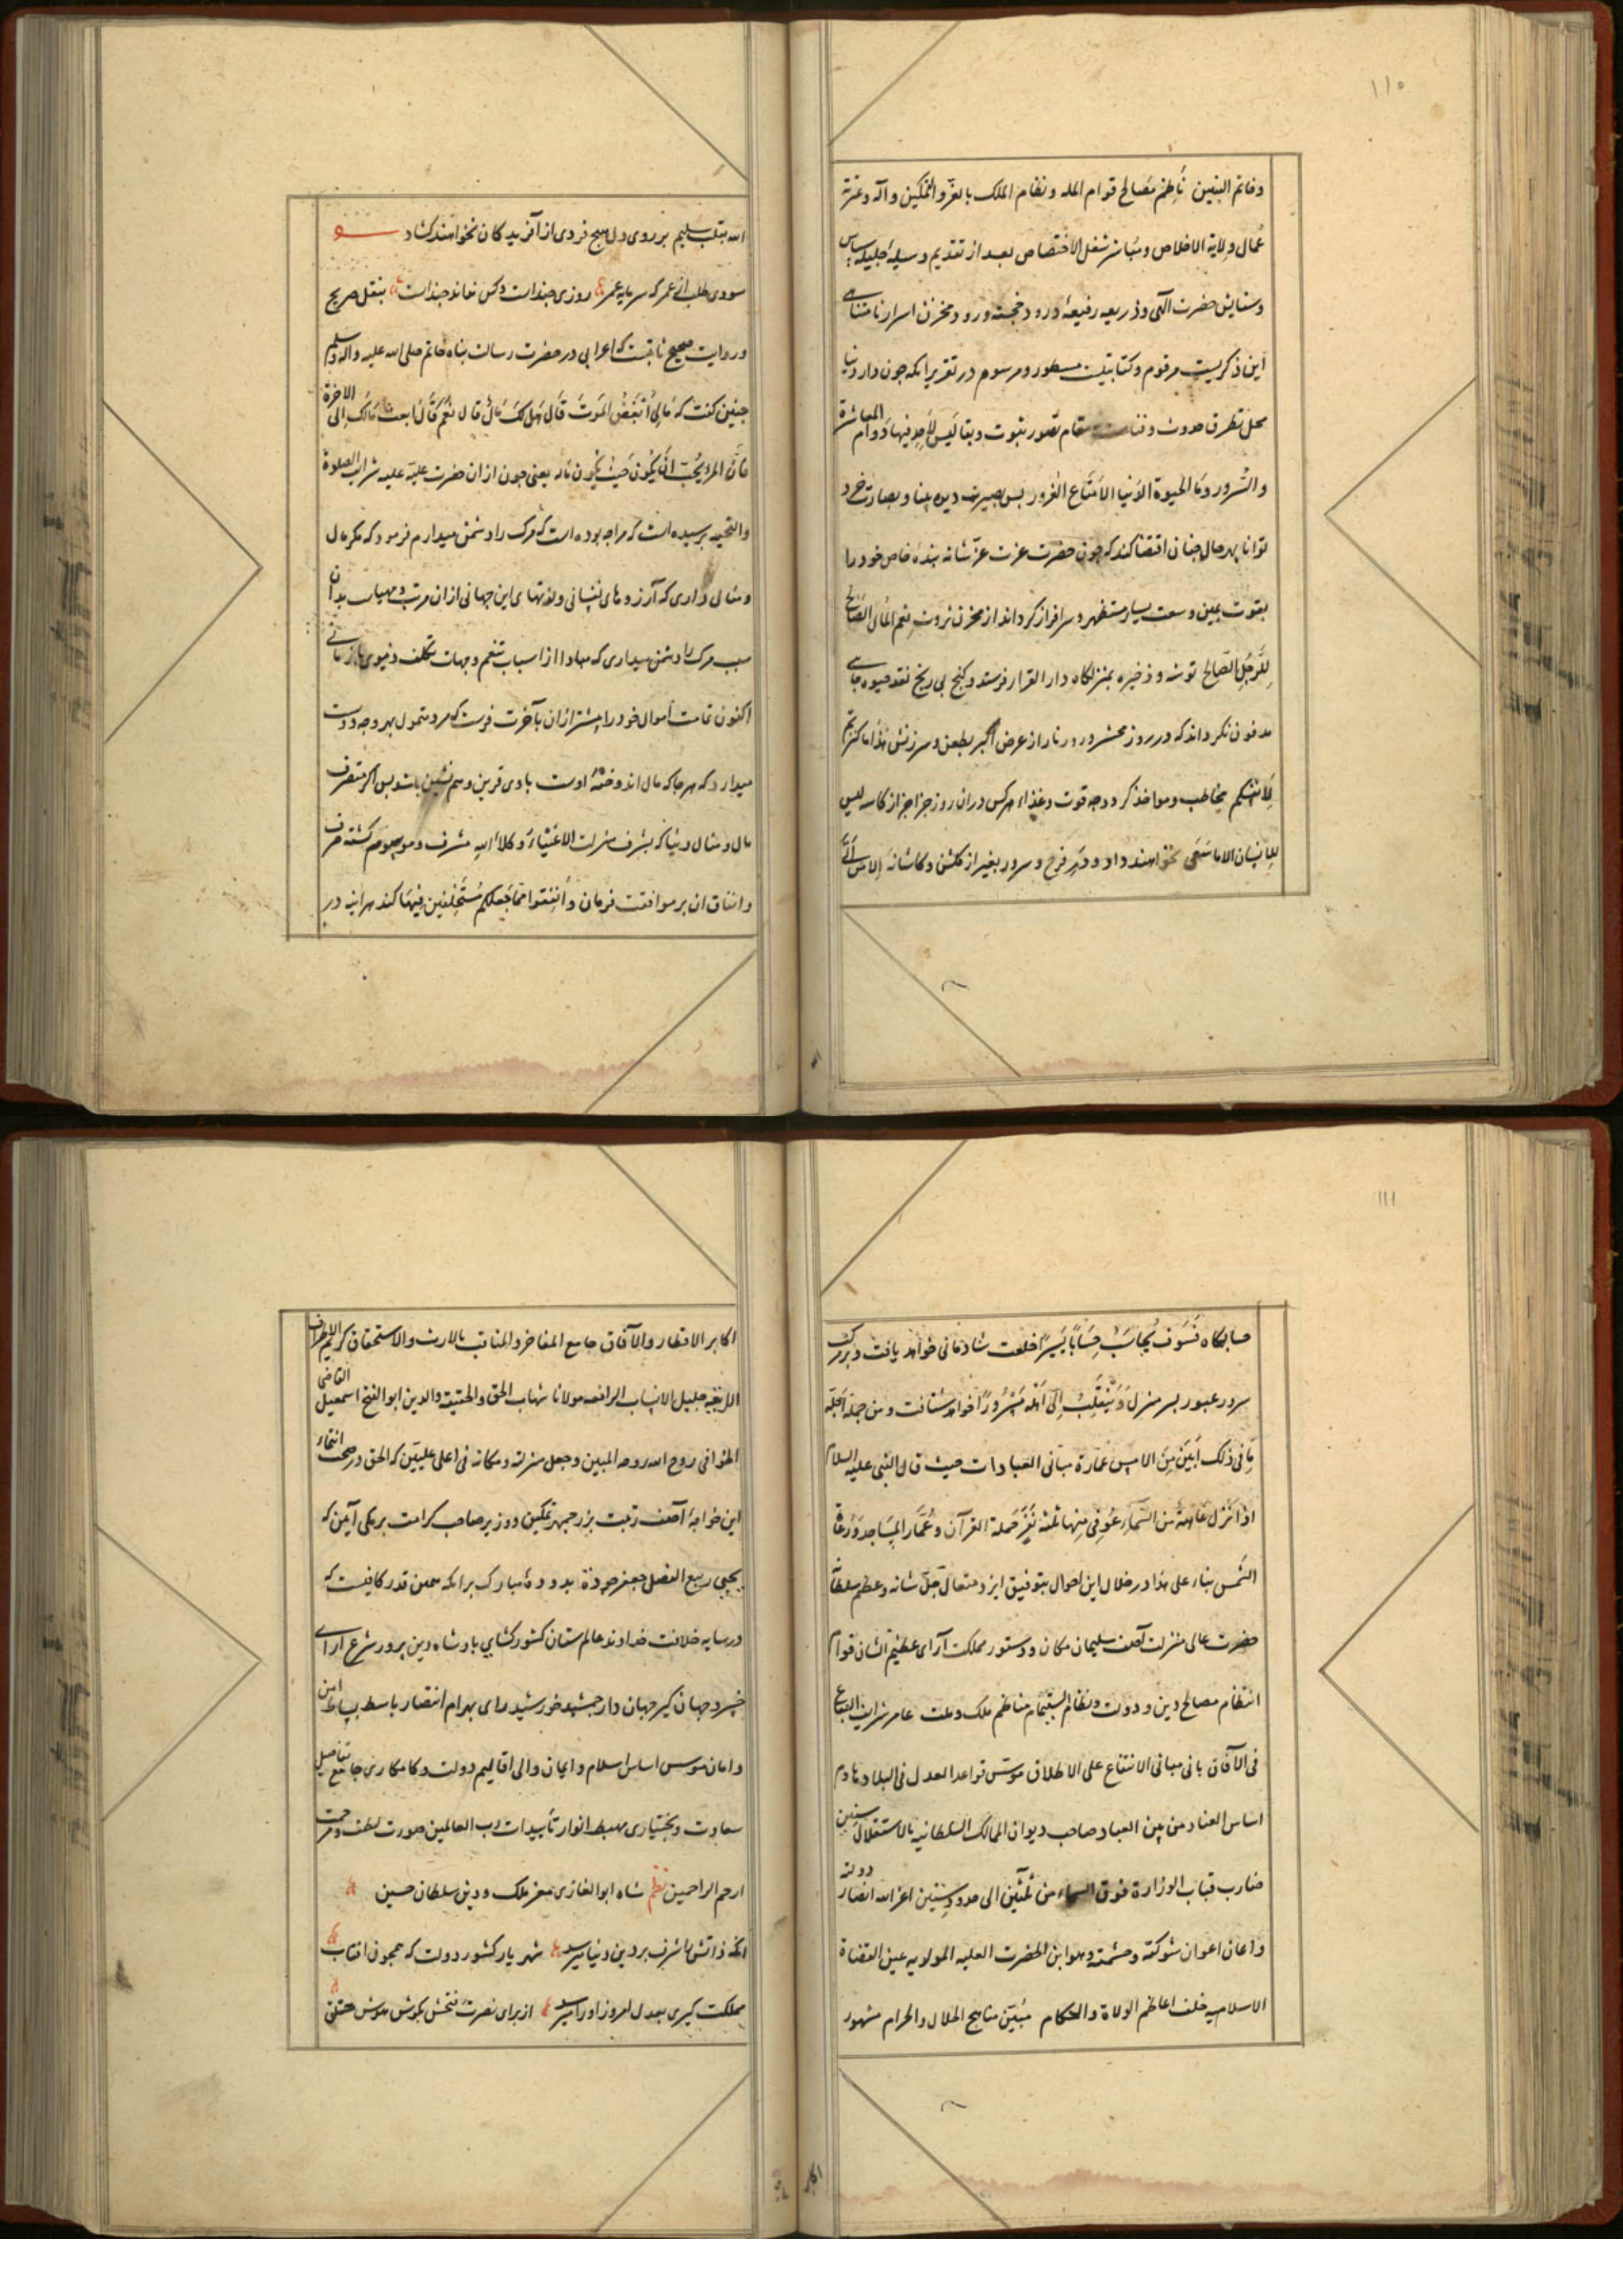 ۱۱۰
وخاتم النبیین ناظم مصالح قوام المله ونظام الملک بالعز والتمکین وآله وعترة
عمال ولایة الاخلاص ومباشر شغل الاختصاص بعد از تقدیم وسیلهٔ جلیلهٔ سپاس
وستایش حضرت الهی وذریعه رفیعهٔ درود خجسته ورود مخزن اسرار نامتناهی
این ذکریست مرقوم وکتابیست مسطور ومرسوم در تقریر انکه چون دار دنیا
محل تطرق حدوث وفناست نه مقام تصور ثبوت وبقا لیس لاحد فیها دوام المعاشرة
والسرور وما الحیوة الدنیا الا متاع الغرور پس بصیرت دیده بینا وبصارت خرد
توانا بهر حال چنان اقتضا کند که چون حضرت عزت عز شانه بندهٔ خاص خود را
بقوت یمین وسعت یسار مستظهر وسرافراز کرداند از مخزن ثروت نعم المال الصالح
للرجل الصالح توشه وذخیره بمنزلکاه دار القرار فرستد وکنج بی رنج نقد حیوه جا
مدفون نکرداند که در روز محشر ودر نار از عرض اکبر بطعن وسرزنش هذا ما کنزتم
لانفسکم مخاطب ومواخذ کردد چه قوت وغذاء هرکس دران روز جزا جز از کاسه لیس
للانسان الا ما سعی نخواهند داد ودر فرح وسرور بغیر از کلشن وکاشانه الا من اتی
الله بقلب سلیم بر روی دل هیچ فردی از آفریدکان نخواهند کشاد
سودی طلب از عمر که سرمایه عمر روزی چنداست وکس نداند چنداست بنقل صریح
وروایت صحیح ثابتست که اعرابی در حضرت رسالت پناه خاتم صلی الله علیه واله وسلم
چنین کفت که مالی أبغض الموت قال هل لک مال قال نعم قال ابعث مالک الی الاخرة
فان المرء یحب ان یکون حیث یکون ماله یعنی چون ازان حضرت علیه شرایف الصلوة
والتحیه پرسیده است که مرا چه بوده است که مرک را دشمن میدارم فرمود که مکر مال
ومنالی داری که آرزوهای نفسانی ولذتهای این جهانی ازان مرتب ومهیاست بدان
سبب مرک را دشمن میداری که مبادا از اسباب تنعم وجهات تکلف دنیوی بازمانی
اکنون تمامت اموال خود را پیشتر ازان بآخرت فرست که مرد متمول بهر وجه دوست
میدارد که هرجا که مال اندوختهٔ اوست باوی قرین وهم نشین باشد پس اکر متصرف
مال ومنال دنیا که بشرف منزلت الاغنیاء وکلاء الله مشرف وموسوم کشته صرف
وانفاق ان بر موافقت فرمان وانفقوا مما جعلکم مستخلفین فیها کند هراینه در
۱۱۱
حسابکاه فسوف یحاسب حسابا یسیرا خلعت شادمانی خواهد یافت وبر مرکب
سرور عبور بسر منزل وینقلب الی اهله مسرورا خواهد شتافت ومن جملة اجله
ما فی ذلک ابین من الامس عمارة مبانی العبادات حیث قال النبی علیه السلام
اذا نزل عاهة من السماء عوفی منها ثلثة نفر حملة القرآن وعمار المساجد ورعاة
الشمس بناء علی هذا در خلال این احوال بتوفیق ایزد متعال جل شانه وعظم سلطانه
حضرت عالی منزلت آصف سلیمان مکان ودستور مملکت آرای عظیم الشان قوام
انتظام مصالح دین ودولت ونظام التیام مناظم ملک وملت عامر شرایف البقاع
فی الآفاق بانی مبانی الانتفاع علی الاطلاق موسس قواعد العدل فی البلاد هادم
اساس العناد من بین العباد صاحب دیوان الممالک السلطانیه بالاستقلال سنین
ضارب قباب الوزارة فوق السماء من ثلثین الی حدود ستین اعز الله انصار دولته
واعان اعوان شوکته وحشمته وهو ابن الحضرت العلیه المولویه عین القضاة
الاسلامیه خلف اعاظم الولاة والحکام مبین مناهج الحلال والحرام مشهور
اکابر
اکابر الاقطار والآفاق جامع المفاخر والمناقب بالارث والاستحقاق کریم الاطراف
جلیل الانساب مولانا شهاب الحق والحقیقه والدین ابو الفتح اسمعیل القاضی
الخوافی روح الله روحه المبین وجعل منزلته ومکانه فی اعلی علیین که الحق در صحت انتماء
این خواجهٔ آصف رتبت بزرجمهر تمکین ووزیر صاحب کرامت برمکی آیین که
یحیی ربیع الفضل جعفر جوده بدودهٔ مبارک برامکه همین قدر کافیست که
در سایه خلافت خداوند عالم ستان کشورکشای پادشاه دین پرور شرع ارای
خسرو جهان کیر جهان دار جمشید خورشید رای بهرام انتصار باسط بساط امن
وامان موسس اساس اسلام وایمان والی اقالیم دولت وکامکاری جامع تفاصیل
سعادت وبختیاری مهبط انوار تأییدات رب العالمین صورت لطف ومرحمت
ارحم الراحمین نظم شاه ابوالغازی معز ملک ودین سلطان حسین
انکه ذاتش را شرف بر دین ودنیا میرسد شهریار کشور دولت که همچون افتاب
مملکت کیری بعدل امروز اورا میرسد از برای نصرت فتحش بکوش هوش خلق